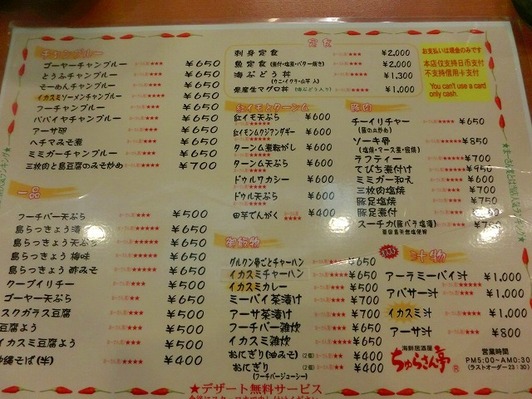 チャンプルー
ゴーヤーチャンプルー ￥650
とうふチャンプルー ￥650
そーめんチャンプルー ￥650
イカスミソーメンチャンプルー ￥650
フーチャンプルー ￥650
パパイヤチャンプルー ￥650
アーサ卵 ￥650
ヘチマみそ煮 ￥650
ミミガーチャンプルー ￥650
三枚肉と島豆腐のみそ炒め ￥700
一品
フーチバー天ぷら ￥500
島らっきょう
島らっきょう
島らっきょう 梅味
島らっきょう 酢みそ
クーブイリチー
ゴーヤー天ぷら
スクガラス豆腐 ￥500
豆腐よう ￥500
イカスミ豆腐よう ￥500
そば(半) ￥400
定食
刺身定食 ￥2,000
魚定食 (煮付・塩焼・バター焼き) ￥2,000
海ぶどう丼 ￥1,300
(ウニ・イクラ・山芋入)
マグロ丼 (海ぶどう入り) ￥1,000
紅イモとターンム
紅イモ天ぷら ￥600
紅イモムクジアンダギー ￥600
ターンム煮転がし ￥600
ターンム天ぷら ￥600
ドゥルワカシー ￥600
ドゥル天 ￥600
田芋でんがく ￥400
御飯物
グルクン骨ごとチャーハン ￥650
イカスミチャーハン ￥650
イカスミカレー ￥650
ミーバイ茶漬け ￥700
アーサ茶漬け ￥650
フーチバー雑炊 ￥650
イカスミ雑炊 ￥650
おにぎり(油みそ) (2個) ￥400
おにぎり (2個) ￥400
(フーチバージューシー)
お支払いは現金のみです
本店仅支持日币支付
不支持信用卡支付
You can't use a card
only cash.
豚肉
チーイリチャー ￥650
(豚の血炒め)
ソーキ骨 ￥650
ラフティー ￥700
てびち煮付け ￥950
ミミガー和え ￥600
三枚肉塩焼 ￥700
豚足塩焼 ￥750
豚足煮付
スーチカ(豚バラ塩漬) ￥750
汁物
アーラミーバイ汁 ￥1,000
アバサー汁 ￥1,000
イカスミ汁 ￥1,000
アーサ汁 ￥800
海鮮居酒屋
ちゅらさん亭
営業時間
PM5:00〜AM0:30
(ラストオーダー23:30)
★デザート無料サービス